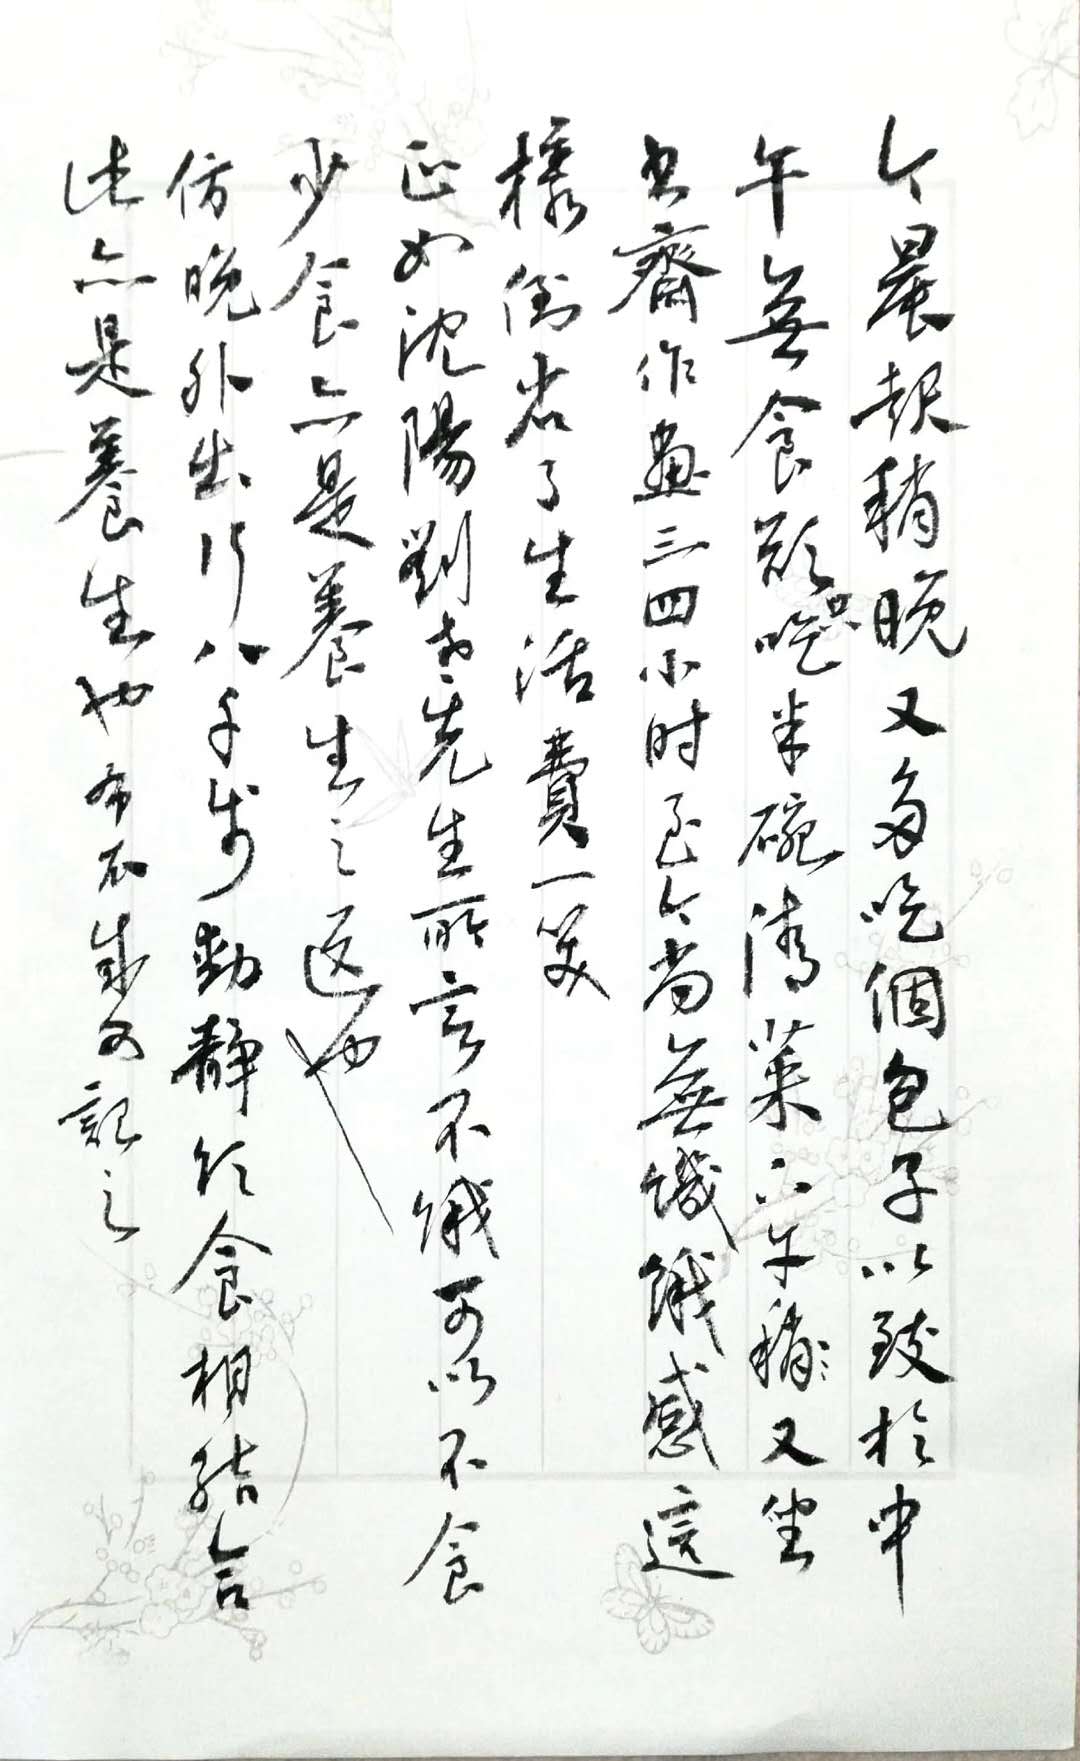 今晨起稍晚又多吃個包子以致於中
午無食欲只吃半碗清菜下午稍稍又坐
書齋作画三四小时至今尚無饑餓感這
樣倒省了生活費一笑
正如沈陽劉老先生所言不餓可以不食
少食亦是養生之道也
傍晚外出行八千步動静飲食相結合
此亦是養生也 布衣 記之